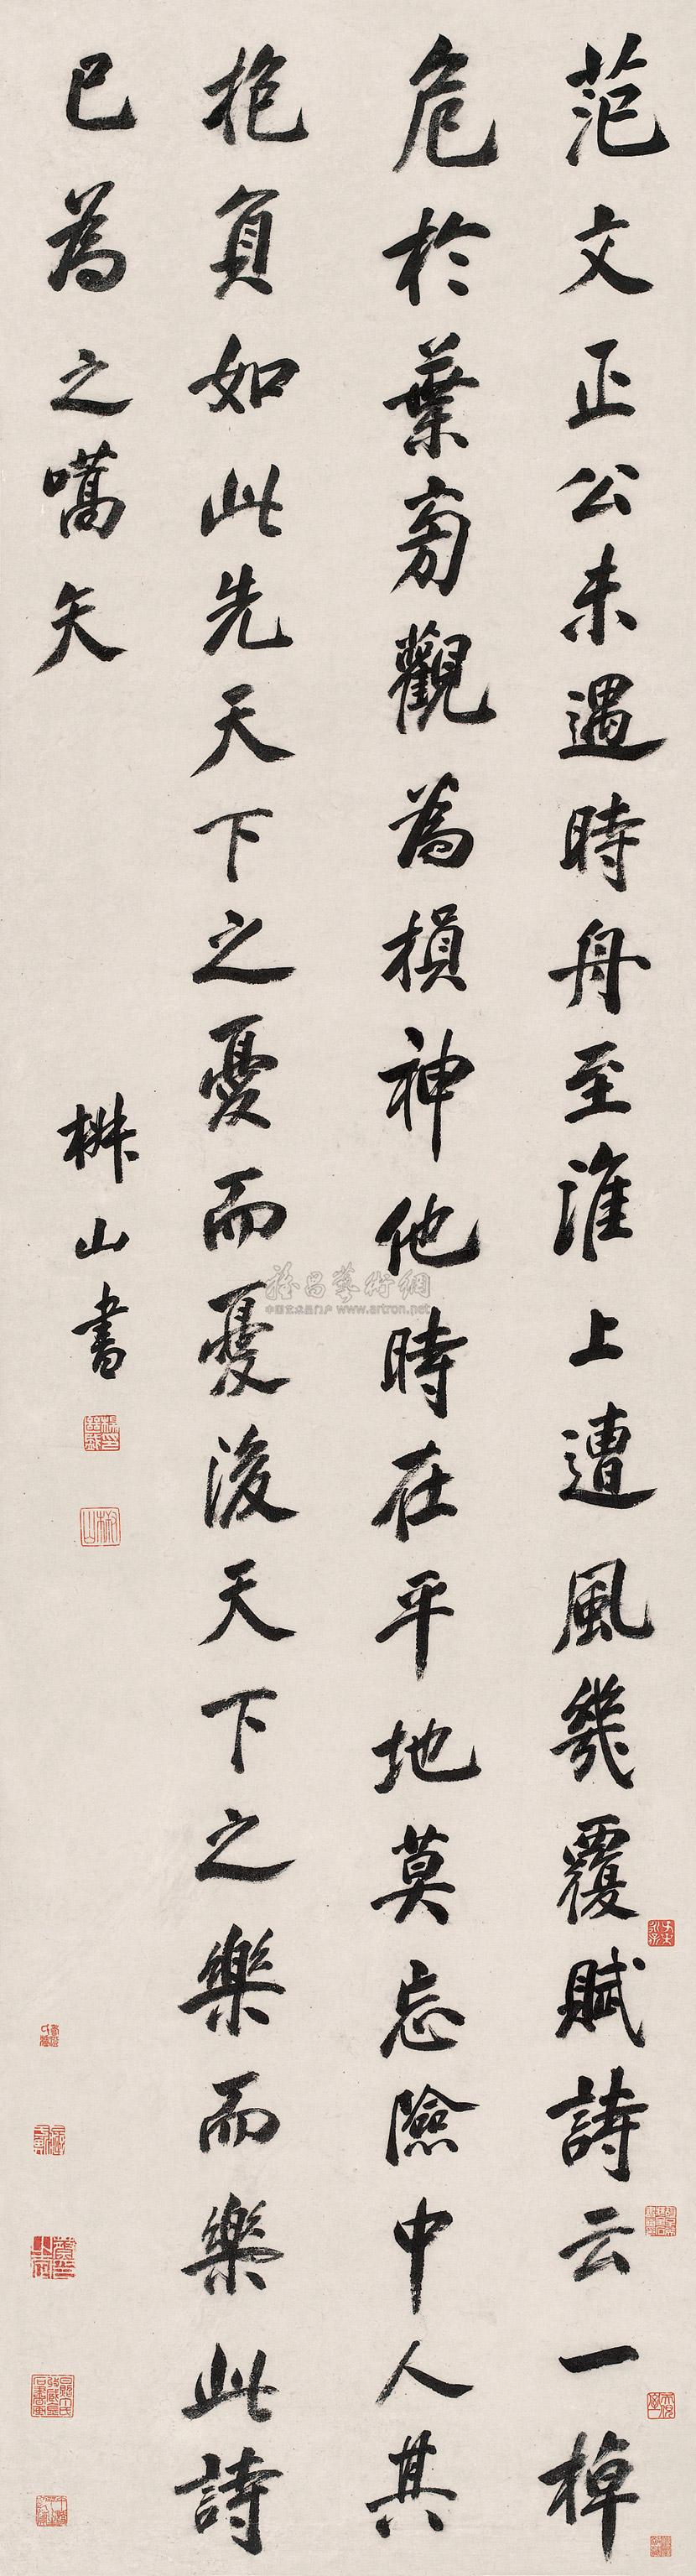 范文正公未遇時舟至淮上遭風幾覆賦詩云一棹
危於葉旁觀為損神他時在平地莫忘險中人其
抱負如此先天下之憂而憂後天下之樂而樂此詩
已為之嚆矢
椒山書
雅昌藝術網
中国艺术品门户 www.artron.net
椒山